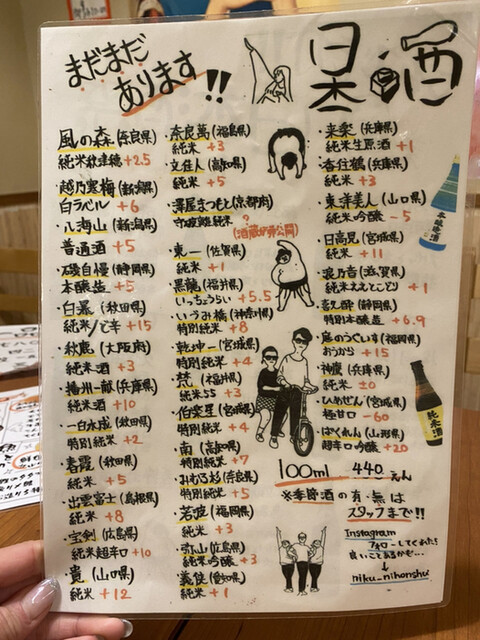 まだまだ
あります!!
日本酒
風の森(奈良県)
純米秋津穂 +2.5
・越乃寒梅(新潟県)
白ラベル +6
・八海山(新潟県)
普通酒 +5
・磯自慢(静岡県)
本醸造 +5
・白瀑(秋田県)
純米ド辛 +15
・秋鹿(大阪府)
純米酒 +3
・播州一献(兵庫県)
純米酒 +10
・一白水成(秋田県)
特別純米 +2
・春霞(秋田県)
純米 +5
・出雲富士(島根県)
純米 +8
・宝剣(広島県)
純米超辛口 +10
・貴(山口県)
純米 +12
・奈良萬(福島県)
純米 +3
・文佳人(高知県)
純米 +5
・澤屋まつもと(京都府)
守破離純米 ?
(酒蔵が非公開)
・東一(佐賀県)
純米 +1
・黒龍(福井県)
いっちょうらい +5.5
・いづみ橋(神奈川県)
特別純米 +8
・乾坤一(宮城県)
特別純米 +4
・梵(福井県)
純米55 +3
・伯楽星(宮城県)
特別純米 +4
・南(高知県)
特別純米 +7
・みむろ杉(奈良県)
特別純米 +5
・若波(福岡県)
純米 +3
・弥山(広島県)
純米吟醸 +3
・義侠(愛知県)
純米 +1
・来楽(兵庫県)
純米生原酒 +1
・香住鶴(兵庫県)
純米 +3
・東洋美人(山口県)
純米吟醸 -5
・日高見(宮城県)
純米 +11
・浪乃音(滋賀県)
純米ええとこどり +1
・喜久酔(静岡県)
特別本醸造 +6.9
・庭のうぐいす(福岡県)
おうから +15
・神鷹(兵庫県)
純米 ±0
・ひめぜん(宮城県)
極甘口 -60
・ばくれん(山形県)
超辛口吟醸 +20
本醸造酒
純米酒
100ml 440えん
※季節酒の有・無は
スタッフまで!!
Instagram
フォローしてくださいね!
良いことあるかも…
→niku_nihonshu